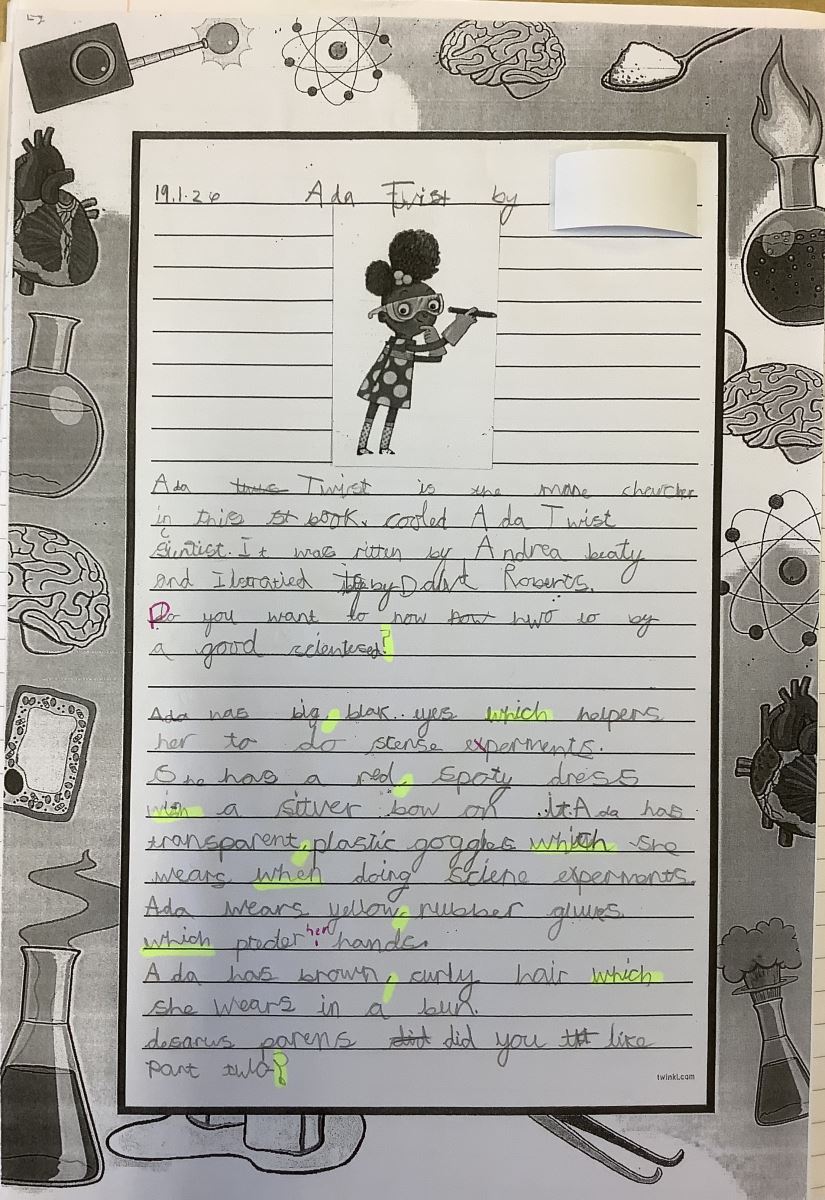 19.1.26 Ada Twist by
Ada Twist is the mane charcter
in this book. cooled Ada Twist
sientist. It was ritten by Andrea beaty
and Ilstratied by David Roberts.
Do you want to now hwo to by
a good scientesed?
Ada has big, blak eyes which helpers
her to do scense experments.
She has a red, spoty dress
with a silver bow on it. Ada has
transparent, plastic goggles which she
wears when doing sciene experments.
Ada wears yellow, rubber gluves
which procter her hands.
Ada has brown, curly hair which
she wears in a bun.
desarus parens did you like
part two?
twinkl.com